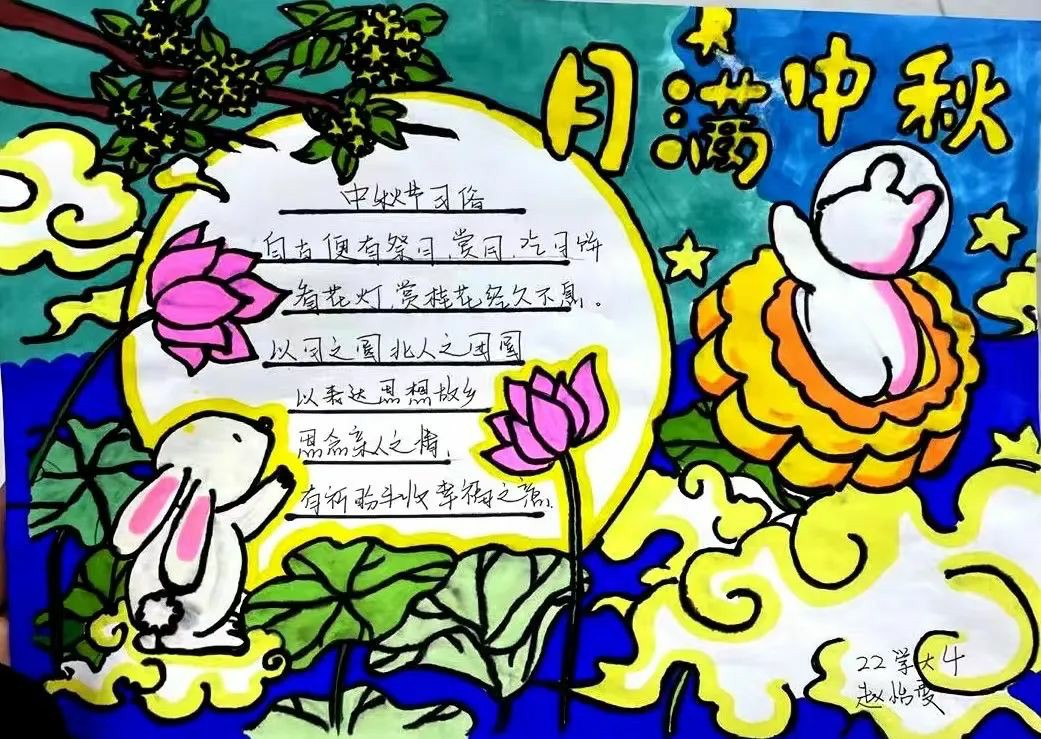 月满中秋
中秋节习俗
自古便有祭月、赏月、吃月饼
看花灯、赏桂花经久不息。
以月之圆兆人之团圆
以表达思想故乡
思念亲人之情,
有祈盼丰收幸福之意.
22学大4
赵怡雯